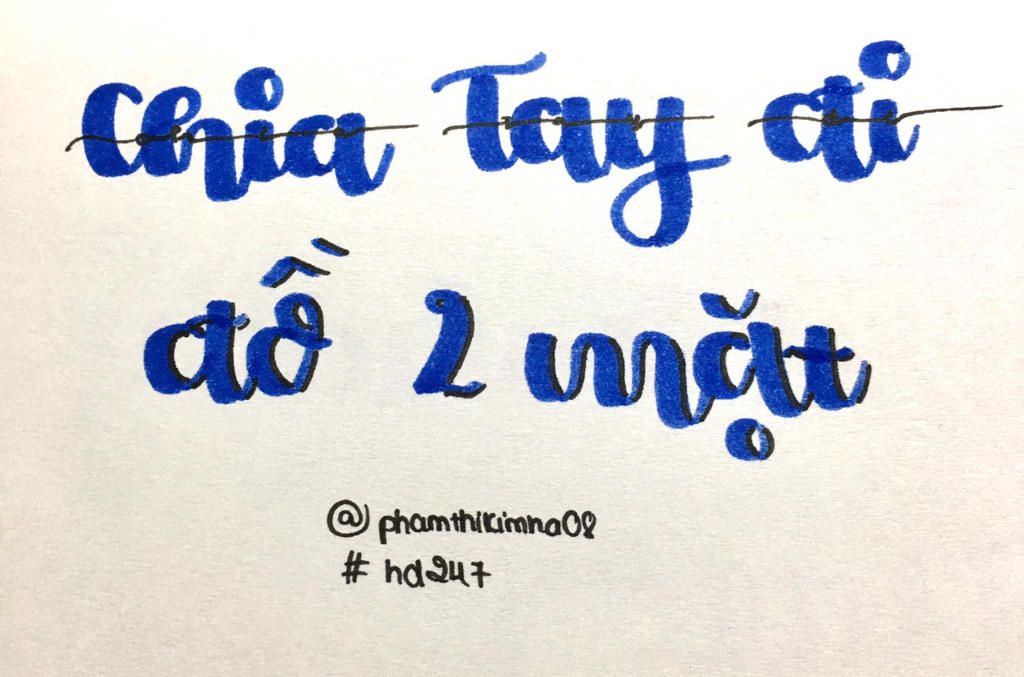 Chia Tay đi
đồ 2 mặt
@phamthikimna08
#hd247